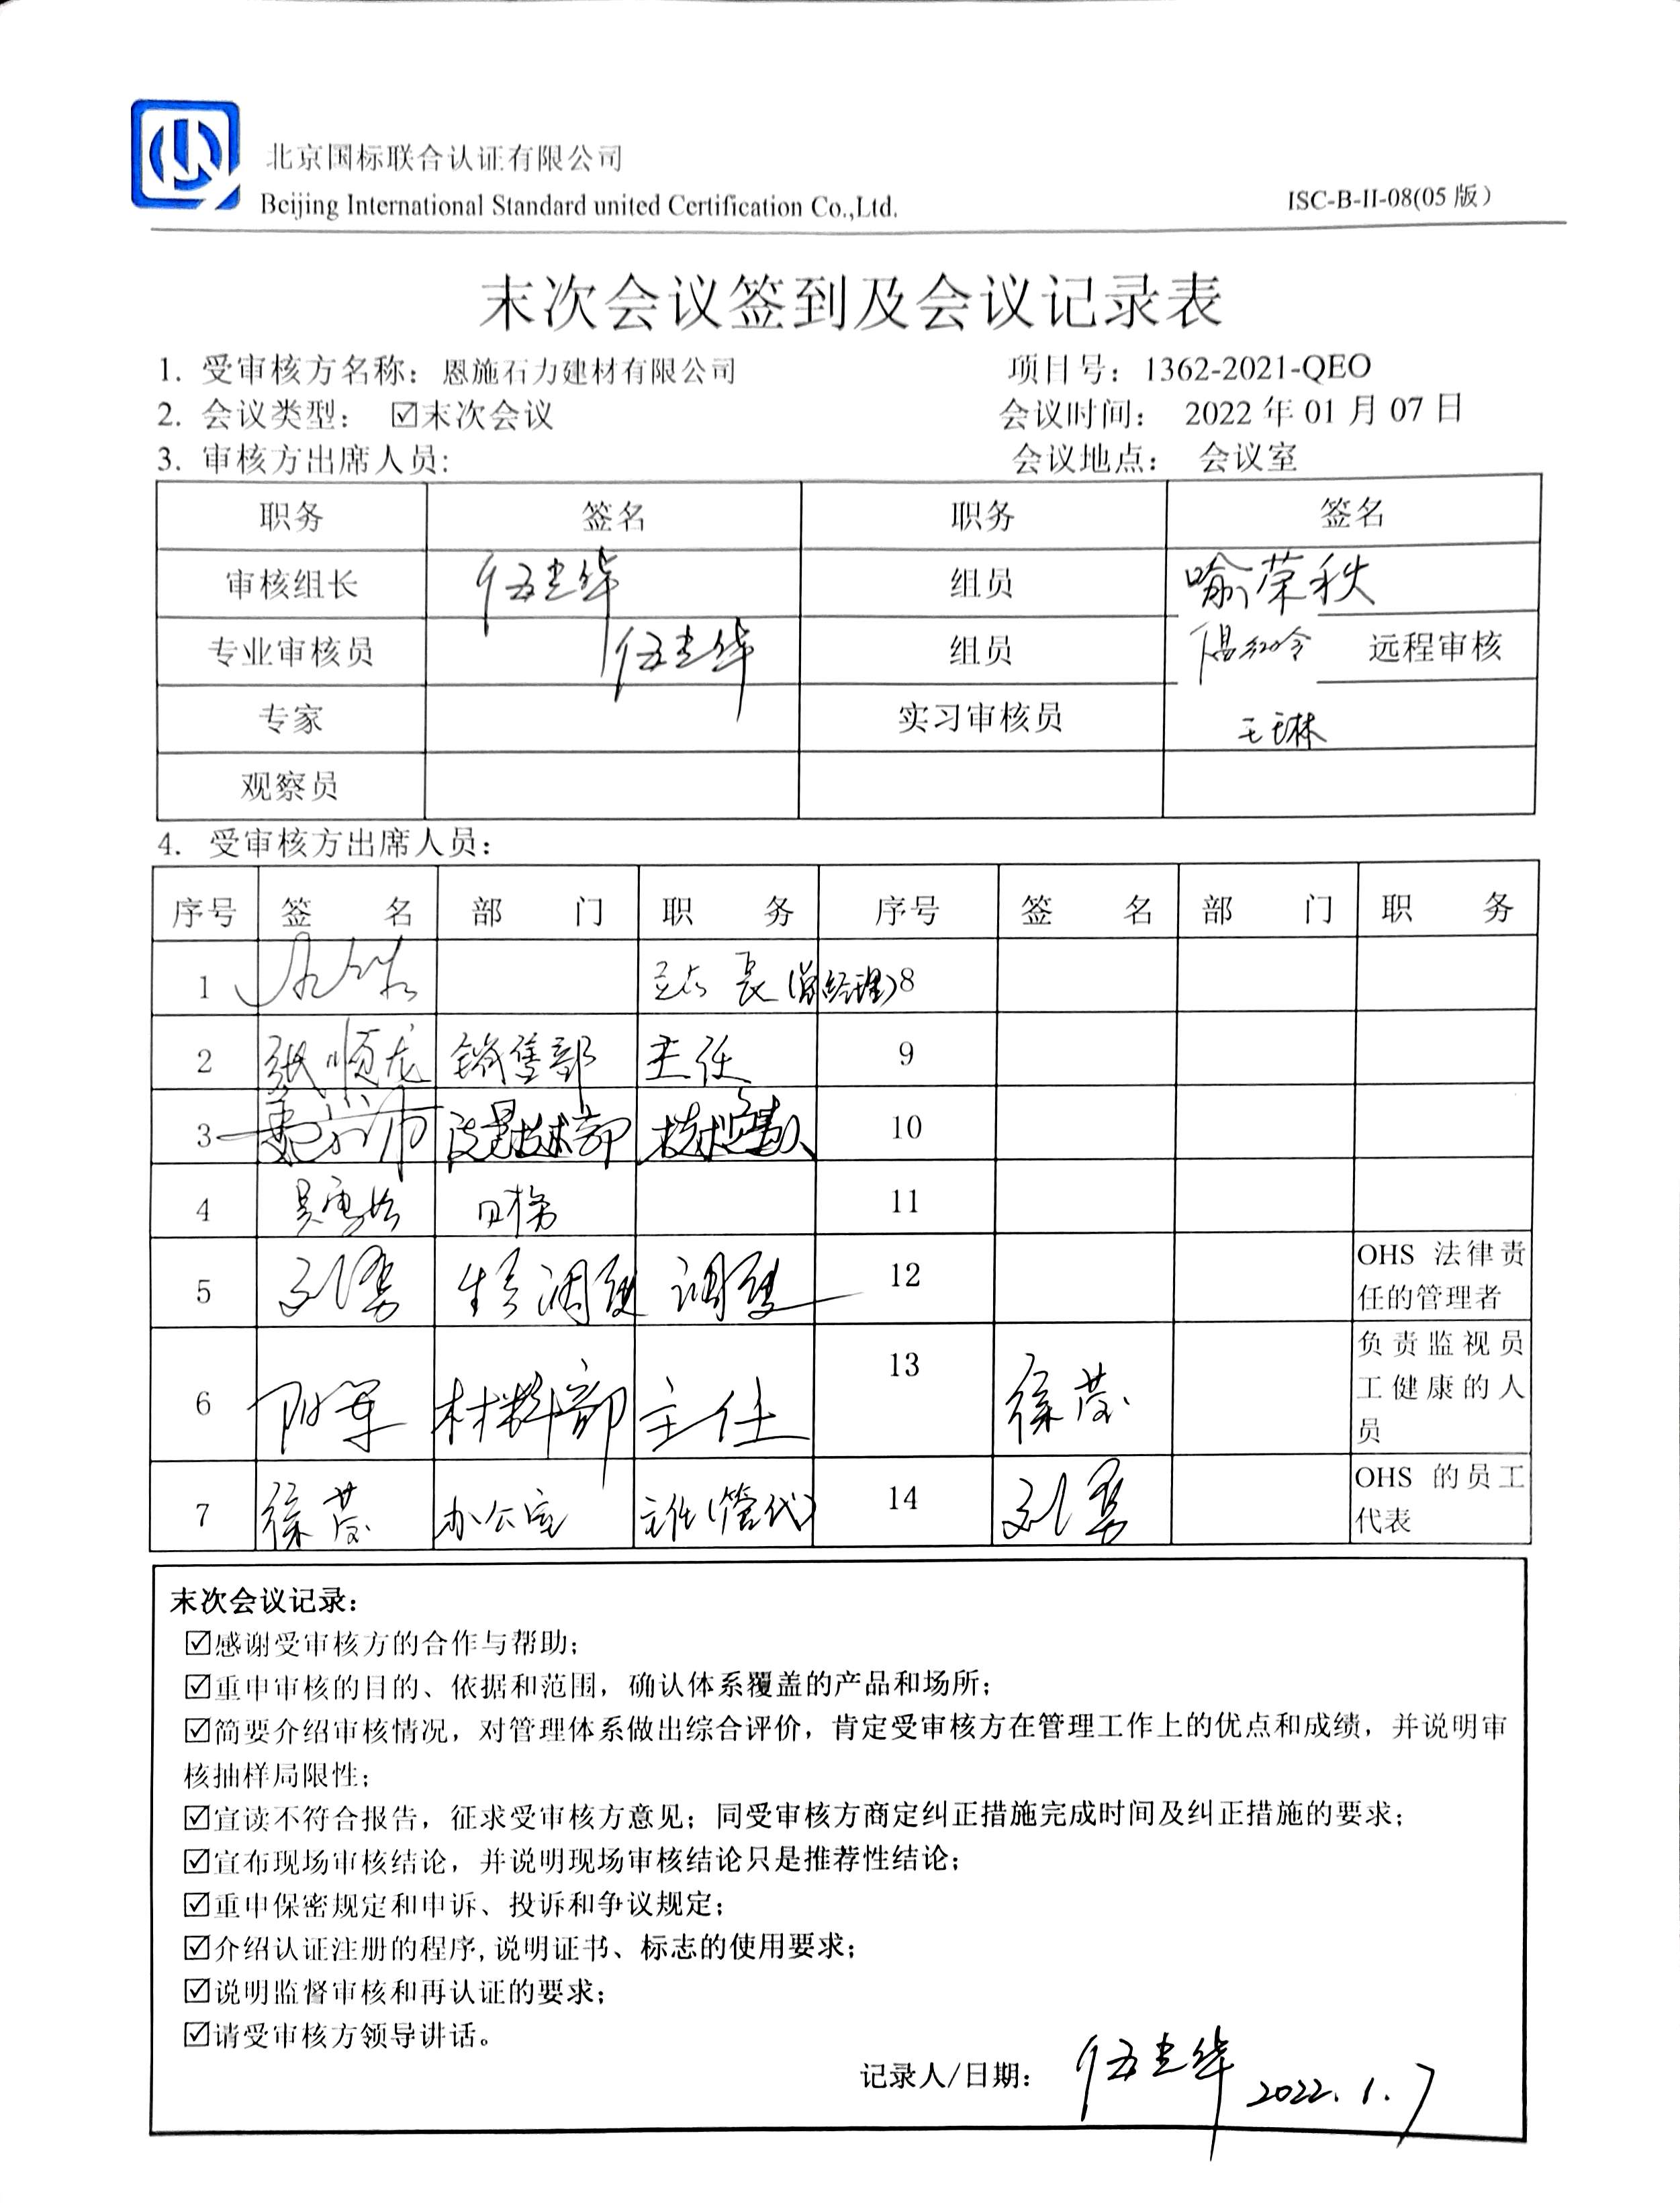 北京国标联合认证有限公司
Beijing International Standard united Certification Co.,Ltd.
ISC-B-II-08(05版)
末次会议签到及会议记录表
1. 受审核方名称：恩施石力建材有限公司 项目号：1362-2021-QEO
2. 会议类型：☑末次会议 会议时间：2022年01月07日
3. 审核方出席人员: 会议地点：会议室
职务 签名 职务 签名
审核组长 伍光华 组员 喻荣秋
专业审核员 伍光华 组员 远程审核
专家 实习审核员 王琳
观察员
4. 受审核方出席人员：
序号 签名 部门 职务 序号 签名 部门 职务
1 站长(总经理) 8
2 张顺龙 销售部 主任 9
3 技术部 10
4 财务 11
5 刘勇 生产调度 调度 12 OHS 法律责任的管理者
6 材料部 主任 13 徐莹 负责监视员工健康的人员
7 徐莹 办公室 主任(管代) 14 刘勇 OHS 的员工代表
末次会议记录：
☑感谢受审核方的合作与帮助；
☑重申审核的目的、依据和范围，确认体系覆盖的产品和场所；
☑简要介绍审核情况，对管理体系做出综合评价，肯定受审核方在管理工作上的优点和成绩，并说明审
核抽样局限性；
☑宣读不符合报告，征求受审核方意见；同受审核方商定纠正措施完成时间及纠正措施的要求；
☑宣布现场审核结论，并说明现场审核结论只是推荐性结论；
☑重申保密规定和申诉、投诉和争议规定；
☑介绍认证注册的程序,说明证书、标志的使用要求；
☑说明监督审核和再认证的要求；
☑请受审核方领导讲话。
记录人/日期：伍光华 2022.1.7